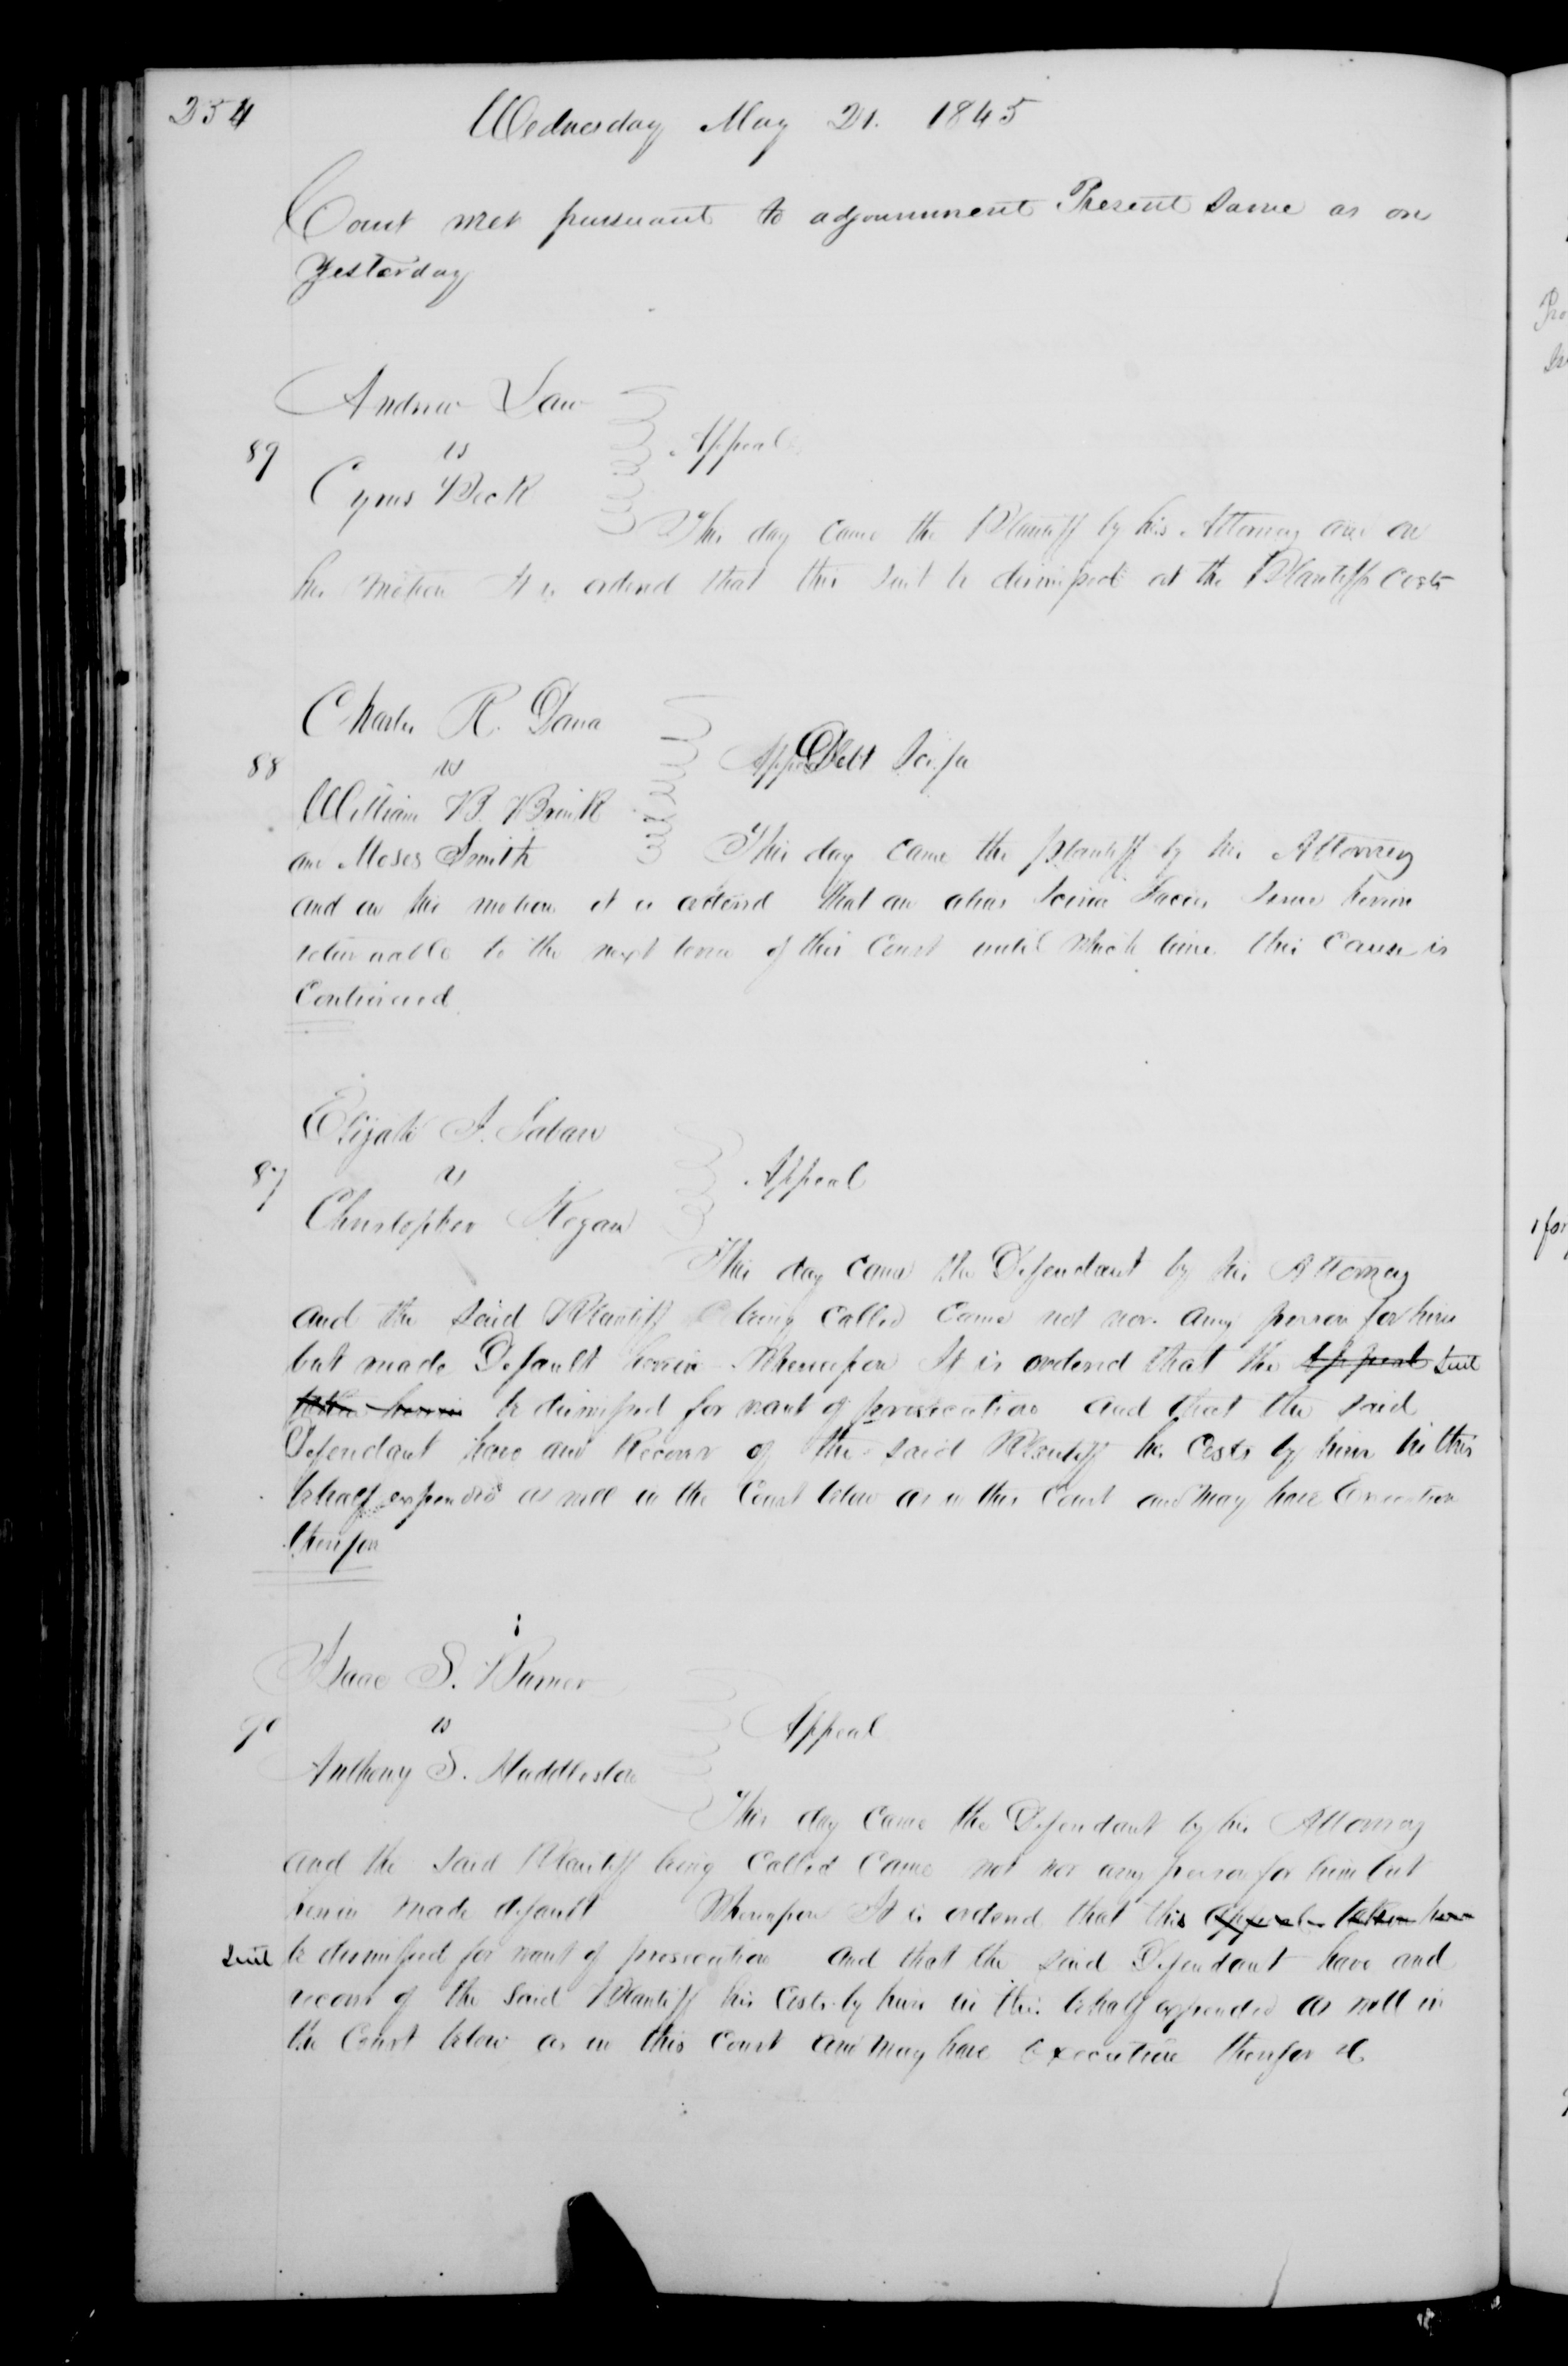 254
Wednesday May 21. 1845
Court met pursuant to adjournment Present Same as on
Yesterday
Andrew Law
89 vs Appeal
Cyrus Peck
This day came the Plaintiff by his Attorney and on
his motion It is ordered that this Suit be dismissed at the Plaintiffs costs
Charles R. Dana
88 vs Debt Sci fa
William B. Brink
and Moses Smith This day came the plaintiff by his Attorney
and on his motion it is ordered that an alias Scire Facias Issue herein
returnable to the next term of this Court until which time this cause is
Continued
Elijah
87 vs Appeal
Christopher Hogan
This day came the Defendant by his Attorney
and the said Plaintiff being called came not nor any person for him
but made Default herein Whereupon It is ordered that the Appeal Suit
taken herein be dismissed for want of prosecution and that the said
Defendant have and Recover of the said Plaintiff his Costs by him in this
behalf expended as well in the Court below as in this Court and may have Execution
therefor
Isaac S.
90 vs Appeal
Anthony S. Huddleston
This day came the Defendant by his Attorney
and the said Plaintiff being called came not nor any person for him but
herein made default Whereupon It is ordered that this appeal taken here
Suit be dismissed for want of prosecution and that the said Defendant have and
recover of the said Plaintiff his Costs by him in this behalf expended as well in
the Court below as in this Court and may have Execution therefor &c